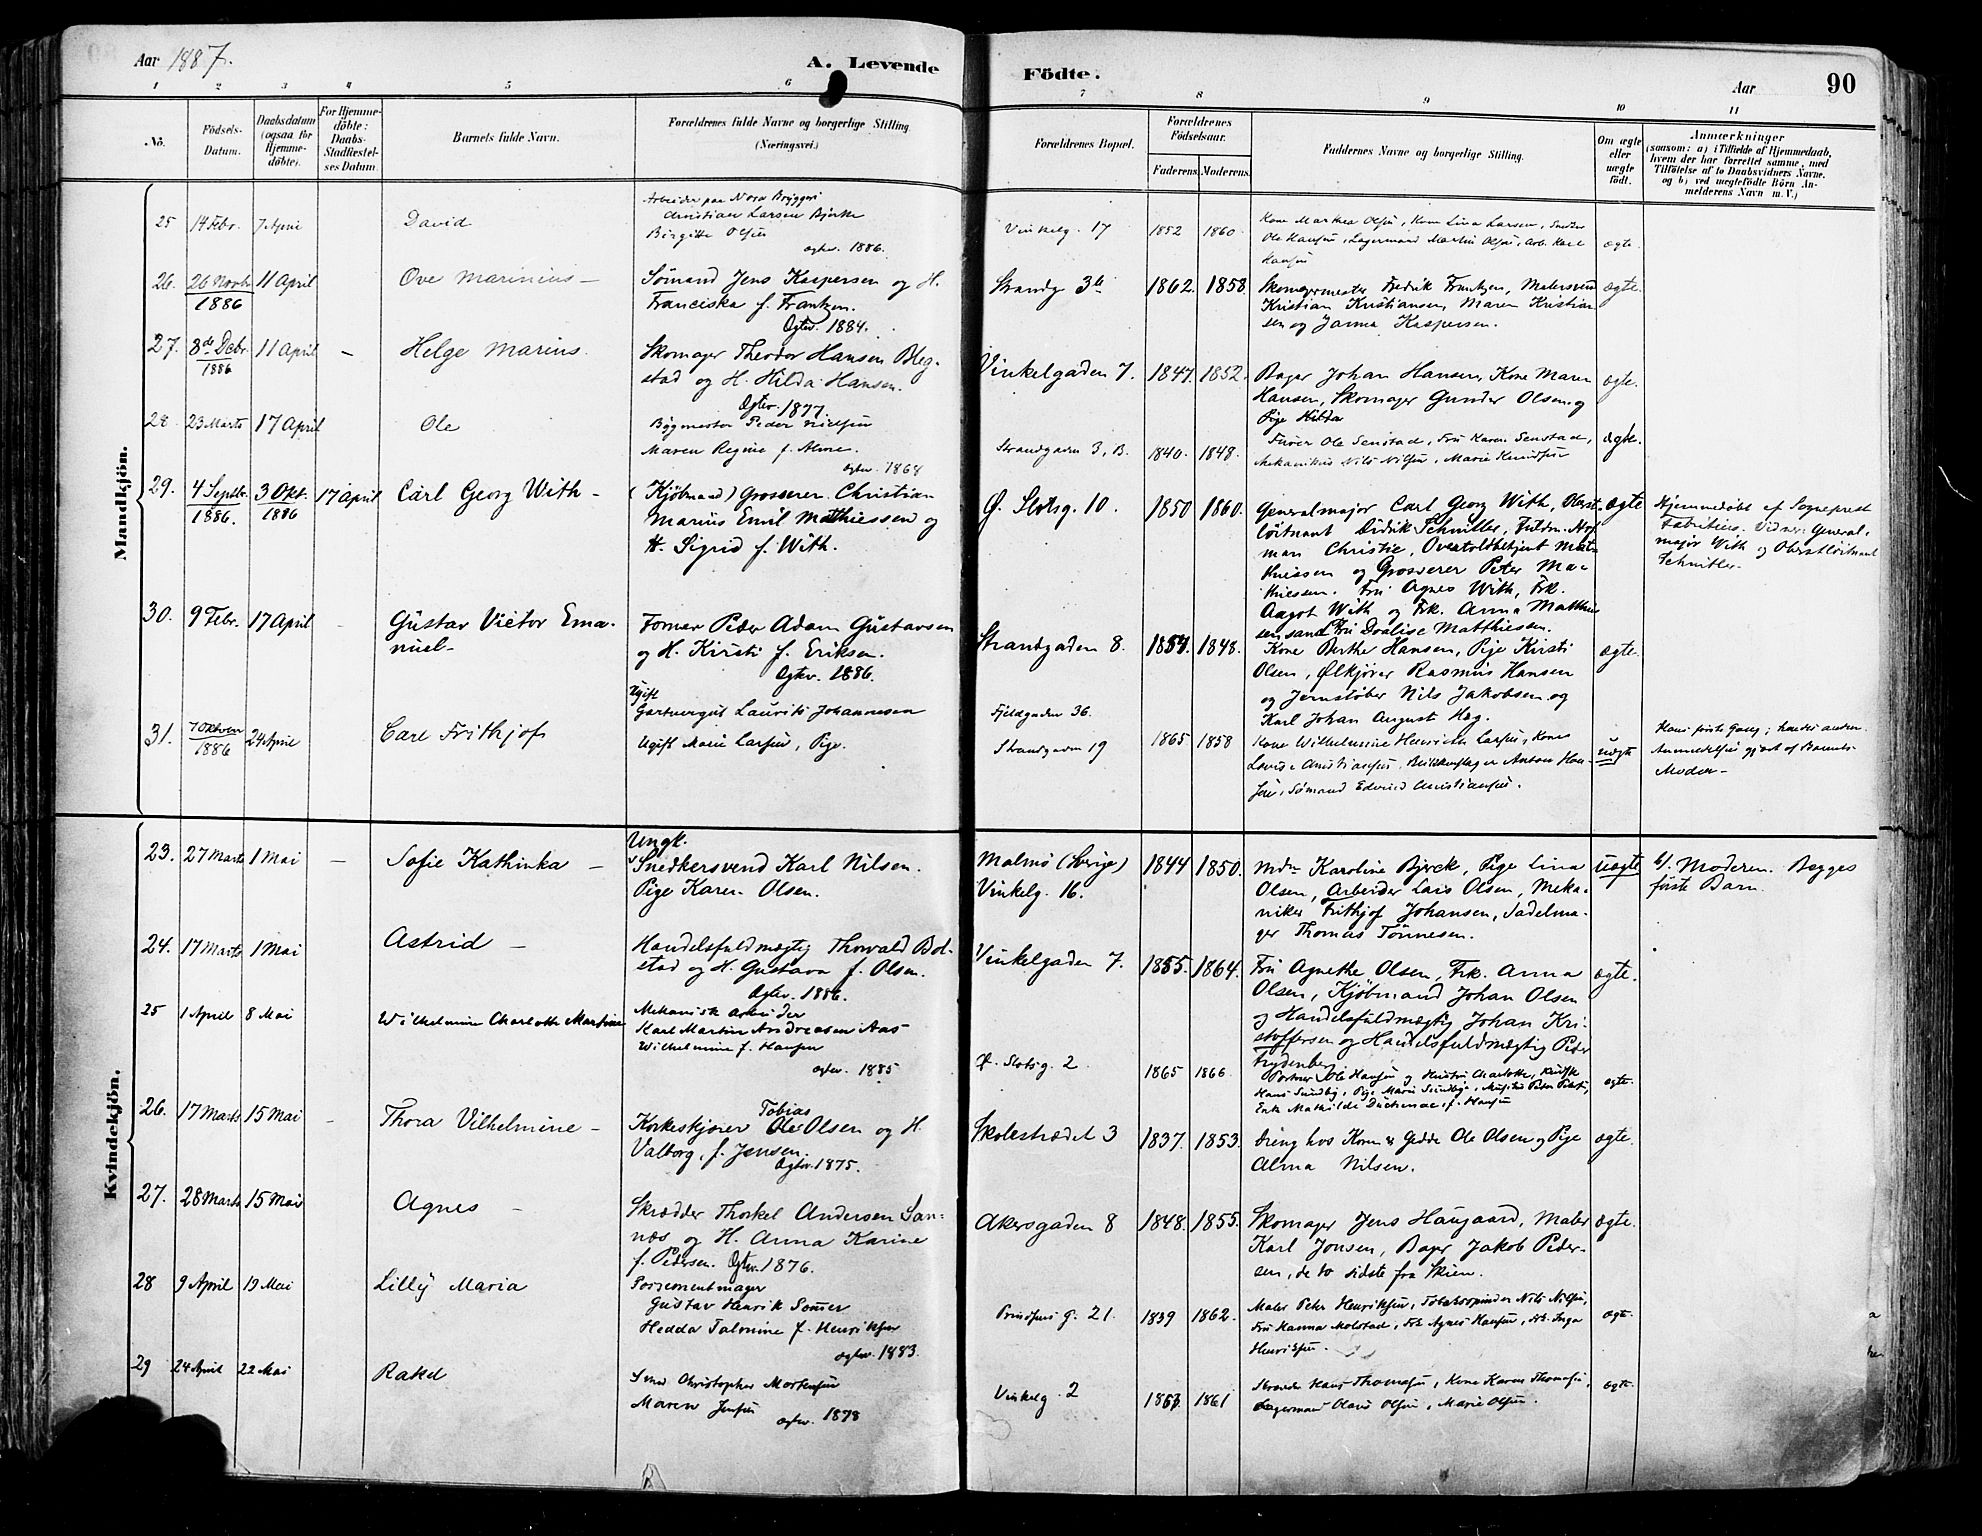 Aar 1887.
A. Levende
Födte.
Aar
90
1 2 3 4 5 6 7 8 9 10 11
No.
Födsels-
Datum.
Daabsdatum
(ogsaa for
Hjemme-
döbte).
For Hjemme-
döbte:
Daabs-
Stadfæstel-
ses Datum.
Barnets fulde Navn.
Forældrenes fulde Navne og borgerlige Stilling.
(Næringsvei.)
Forældrenes Bopæl.
Forældrenes
Födselsaar.
Faderens. Moderens.
Faddernes Navne og borgerlige Stilling.
Om ægte
eller
uægte
født.
Anmærkninger
(saasom: a) i Tilfælde af Hjemmedaab,
hvem der har forrettet samme, med
Tilföielse af to Daabsvidners Navne.
og b) ved uægtefödte Börn An-
melderens Navn m. V.)
Mandkjön.
25 14 Febr. 7 April David
Arbeider paa Nora Bryggeri
Christian Larsen Bjerke
Birgitte Olsen
ægtev. 1886.
Vinkelg. 17 1852 1860
Kone Markea Olsen, Kone Lina Larsen, Snedker
Ole Hansen, Lagermand Martin Olsen, Arb. Karl
Hansen
ægte.
26. 26 Novbr. 1886 11 April Ove Marinius
Sømand Jens Kaspersen og H.
Franciska f. Frantzen.
Ægtev. 1884.
Strandg. 3b 1862. 1858.
Skomagermester Fredrik Frantzen, Malersvend
Kristian Kristiansen, Maren Kristian
sen og Janna Kaspersen.
ægte.
27. 8de Debr. 1886 11 April – Helge Marius.
Skomager Theodor Hansen Bleg-
stad og H. Hilda Hansen.
Ægtev. 1877.
Vinkelgaden 7. 1847. 1852.
Bager Johan Hansen, Kone Maren
Hansen, Skomager Gunder Olsen og
Pige Hilda
ægte.
28 23 Marts 17 April Ole
Bygmester Peder Nielsen
Maren Regine f. Alme.
ægtev. 1868
Strandgaden 3, B. 1840. 1848.
Fører Ole Senstad, Fru Karen Senstad,
Mekanikus Nils Nilsen, Marie Knudsen
ægte.
29. 4 Septbr. 1886. 3 Okt. 1886 17 April Carl Georg With –
(Kjøbmand) Grosserer Christian
Marius Emil Mathiessen og
H. Sigrid f. With.
Ø. Slotsg. 10. 1850 1860.
Generalmajor Carl Georg With, Oberst
löitnant Didrik Schnitler, Fuldm. Hart-
man Christie, Overtoldbetjent Mat-
thiessen og Grosserer Peter Ma-
thiessen. Fru Agnes With, Frk.
Aagot With og Frk. Anna Matthie
sen samt Fru Doalise Matthiessen.
ægte
Hjemmedøbt af Sogneprest
Fabritius. Vidner: General-
major With og Oberstløitnant
Schnitler.
30. 9 Febr. 17 April Gustav Victor Ema-
nuel –
Former Peder Adam Gustavsen
og H. Kirsti f. Eriksen.
Ægtev. 1886.
Strandgaden 8. 1854. 1848.
Kone Berthe Hansen, Pige Kirsti
Olsen, Ølkjører Rasmus Hansen
og Jernstøber Nils Jakobsen og
Karl Johan August Heg.
ægte.
31. 7 Oktober 1886 24 April Carl Frithjof
Ugift
Gartnergut Laurits Johannesen
Ugift Marie Larsen, Pige.
Fjeldgaden 36.
Strandgaden 19 1865 1858
Kone Wilhelmine Henriette Larsen, Kone
Lovise Christiansen, Anton Han-
sen, Sømand Edvind Christiansen.
uægte
Hans første Gang; hendes anden
Anmeldelsen gjort af Barnets
Moder –
Kvindekjön.
23. 27 Marts 1 Mai – Sofie Kathinka –
Ungk.
Snedkersvend Karl Nilsen.
Pige Karen Olsen.
Malmø (Sverige)
Vinkelg. 16. 1844 1850.
Mdm Karoline Bjerck, Pige Lina
Olsen, Arbeider Lars Olsen, Meka-
niker Frithjof Johansen, Sadelma-
ger Thomas Tönnesen.
Uægte.
b). Moderen. Begges
første Barn.
24. 17 Marts 1 Mai Astrid –
Handelsfuldmægtig Thorvald Bol-
stad og H. Gustava f. Olsen.
Ægtev. 1886.
Vinkelgaden 7. 1855. 1864.
Fru Agnethe Olsen, Frk. Anna
Olsen, Kjøbmand Johan Olsen
og Handelsfuldmægtig Johan Kri-
stoffersen og Handelsfuldmægtig Peder
Frydenberg
ægte.
25 1 April 8 Mai Wilhelmine Charlotte Martine
Mekanisk arbeider
Karl Martin Andreasen Aas
Wilhelmine f. Hansen
ægtev. 1885
Ø. Slotsg. 2 1865 1866
Portner Ole Hansen og Hustru Charlotte,
Hans Sundby, Pige Marie Sundbye,
Enke Mathilde f. Hansen
ægte.
26. 17 Marts 15 Mai – Thora Vilhelmine –
Tobias
Korkeskjærer Ole Olsen og H.
Valborg, f. Jensen.
Ægtev. 1875.
Skolestrædet 3 1837. 1853.
Dreng hos Korn & Gedde Ole Olsen og Pige
Alma Nilsen.
ægte.
27. 28 Marts 15 Mai Agnes –
Skrædder Thorkel Andersen San-
næs og H. Anna Karine
f. Pedersen. Ægtev. 1876.
Akersgaden 8 1848. 1855.
Skomager Jens Haugaard, Maler
Karl Jonsen, Bager Jakob Peder-
sen, de to sidste fra Skien.
ægte.
28 9 April 19 Mai Lilly Maria
Possementmager
Gustav Henrik Somer
Hedda Talmine f. Henriksen
ægtev. 1883.
Prindsens g. 21. 1839 1862.
Maler Peter Henriksen, Tobakspinder Nils Nilsen,
Fru Hanna Molstad, Frk Agnes Hansen, Frk. Inga
Henriksen.
ægte.
29 24 April 22 Mai Rakel
Smed Christopher Mortensen
Maren Jensen
ægtev. 1878
Vinkelg. 2 1853. 1861
Hans Thomasen, Kone Karen Thomasen,
Lagermand Olaus Olsen, Marie Olsen.
ægte.